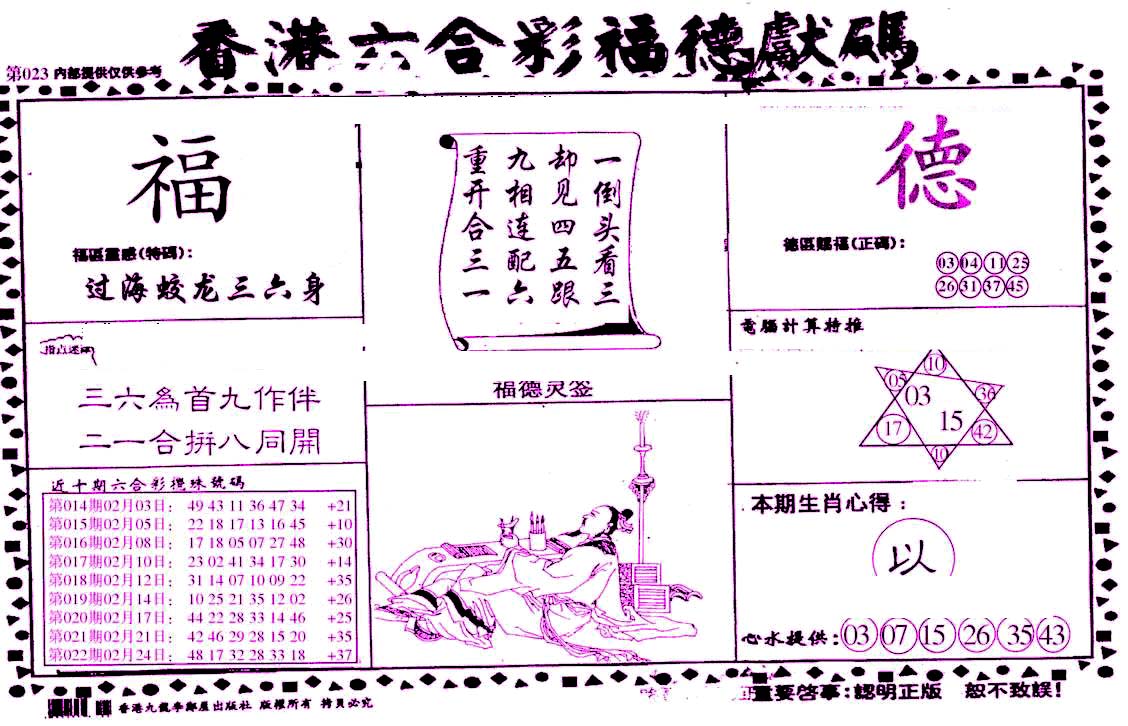 香港六合彩福德獻碼
第023 内部提供仅供参考
福
福區靈感(特碼):
过海蛟龙三六身
一倒头看三
却见四五跟
九相连配六
重开合三一
德
德區賜福(正碼):
03 04 11 25
26 31 37 45
三六為首九作伴
二一合拼八同開
福德灵签
電腦計算特推
10
05 03 36
17 15 42
10
近十期六合彩攪珠號碼
第014期02月03日: 49 43 11 36 47 34 +21
第015期02月05日: 22 18 17 13 16 45 +10
第016期02月08日: 17 18 05 07 27 48 +30
第017期02月10日: 23 02 41 34 17 30 +14
第018期02月12日: 31 14 07 10 09 22 +35
第019期02月14日: 10 25 21 35 12 02 +26
第020期02月17日: 44 22 28 33 14 46 +25
第021期02月21日: 42 46 29 28 15 20 +35
第022期02月24日: 48 17 32 28 33 18 +37
本期生肖心得:
以
心水提供: 03 07 15 26 35 43
重要啓事:認明正版 恕不致誤!
香港九龍李鄭屋出版社 版權所有 拷貝必究